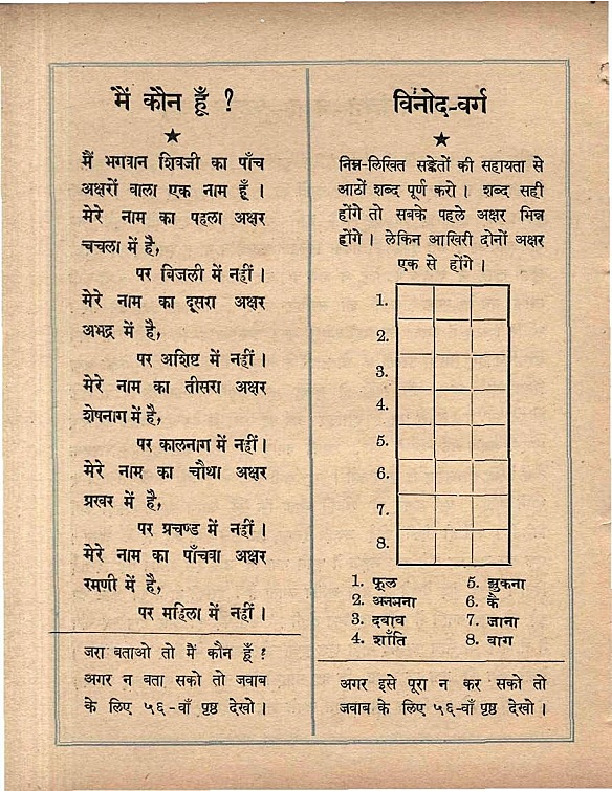 मैं कौन हूँ ?
★
मैं भगवान शिवजी का पाँच
अक्षरों वाला एक नाम हूँ ।
मेरे नाम का पहला अक्षर
चचला में है,
पर बिजली में नहीं ।
मेरे नाम का दूसरा अक्षर
अभद्र में है,
पर अशिष्ट में नहीं ।
मेरे नाम का तीसरा अक्षर
शेषनाग में है,
पर कालनाग में नहीं ।
मेरे नाम का चौथा अक्षर
प्रखर में है,
पर प्रचण्ड में नहीं ।
मेरे नाम का पाँचवा अक्षर
रमणी में है,
पर महिला में नहीं ।
जरा बताओ तो मैं कौन हूँ ?
अगर न बता सको तो जवाब
के लिए ५६-वाँ पृष्ठ देखो ।
विनोद-वर्ग
★
निम्न-लिखित सङ्केतों की सहायता से
आठों शब्द पूर्ण करो । शब्द सही
होंगे तो सबके पहले अक्षर भिन्न
होंगे । लेकिन आखिरी दोनों अक्षर
एक से होंगे ।
1.
2.
3.
4.
5.
6.
7.
8.
1. फूल
2. अनमना
3. दबाव
4. शाँति
5. झुकना
6. कै
7. जाना
8. बाग
अगर इसे पूरा न कर सको तो
जवाब के लिए ५६-वाँ पृष्ठ देखो ।